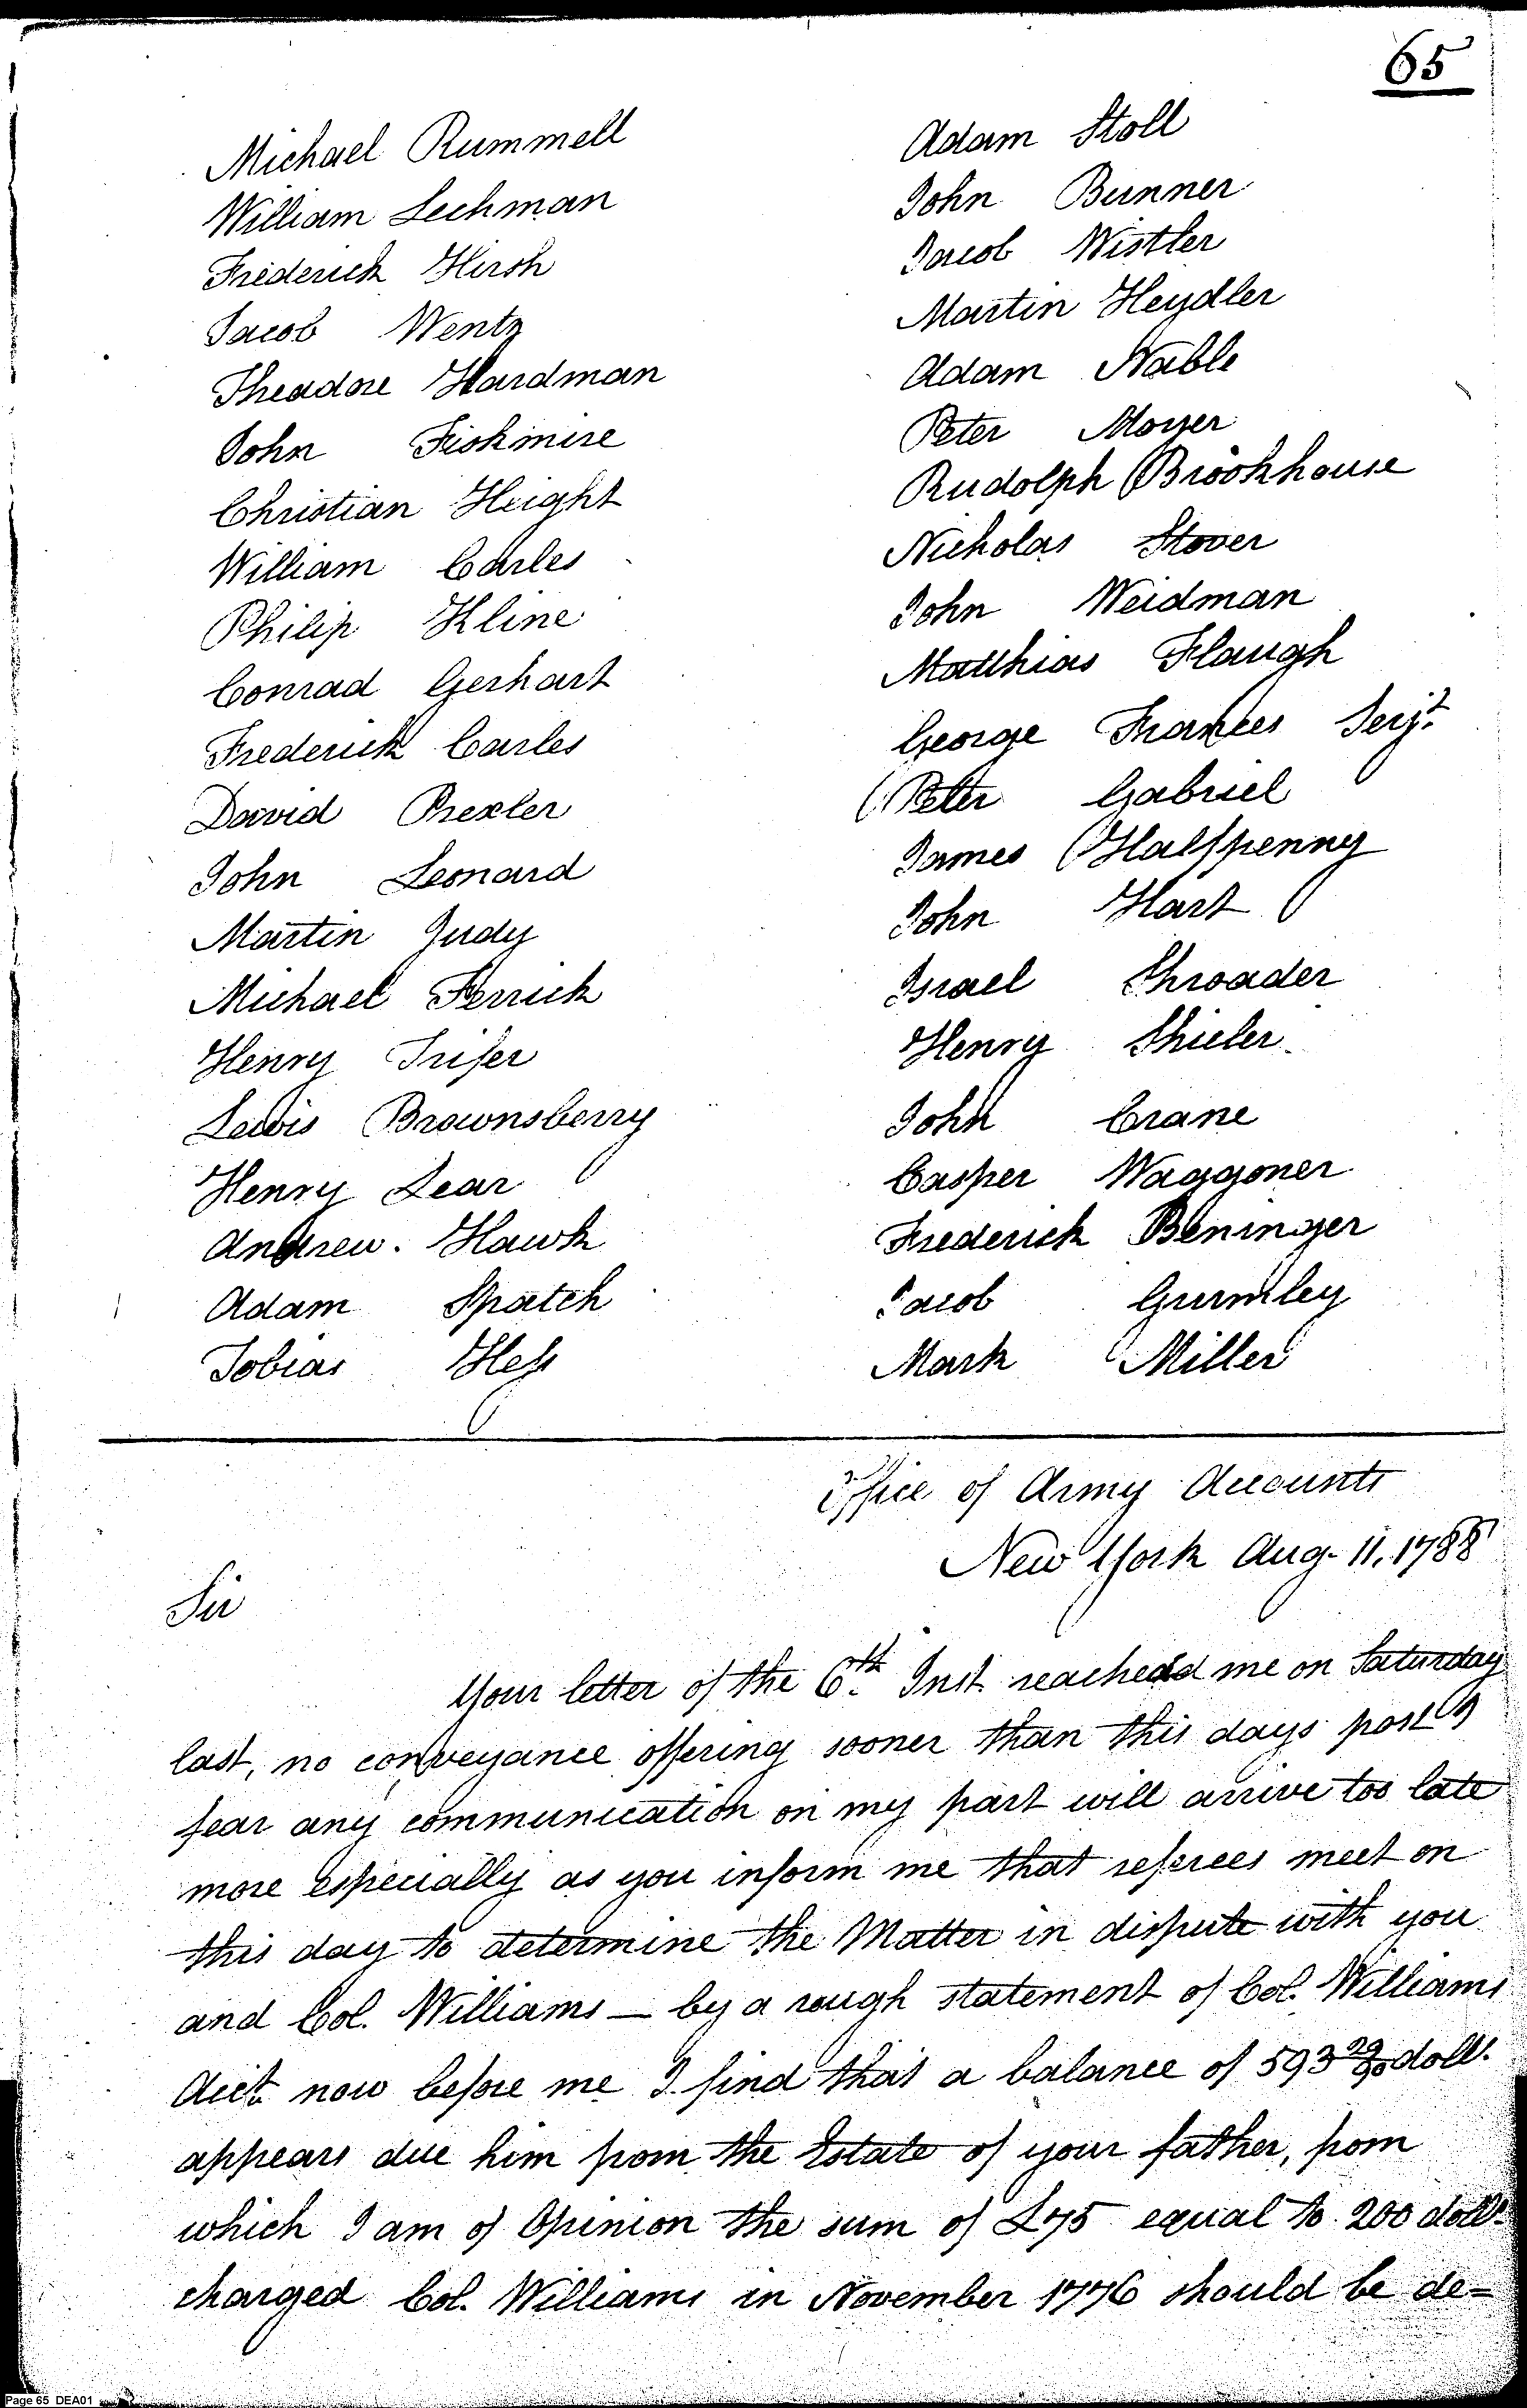 65
Michael Rummell
William Lechman
Frederick Hirsh
Jacob Wentz
Theadore Hardman
John Fishmire
Christian Height
William Carles
Philip Kline
Conrad Gerhart
Frederick Carles
David Prexler
John Leonard
Martin Judy
Michael Ferrick
Henry Trifer
Lewis Brownsberry
Henry Lear
Andrew. Hawk
Adam Spatch
Tobias Hess
Adam Stoll
John Bunner
Jacob Wistler
Martin Heydler
Adam Nable
Peter Moyer
Rudolph Brookhouse
Nicholas Stover
John Weidman
Matthias Flaugh
George Frances Serjt.
Peter Gabriel
James Halfpenny
John Hart
Israel Shroader
Henry Shieler
John Crane
Casper Waggoner
Frederick Beninger
Jacob Gurmley
Mark Miller
Office of Army Accounts
New York Aug. 11, 1788
Sir
Your letter of the 6th Inst. reached me on Saturday
last, no conveyance offering sooner than this days post I
fear any communication on my part will arrive too late
more especially as you inform me that referees meet on
this day to determine the Matter in dispute with you
and Col. Williams — by a rough statement of Col. Williams
Acct. now before me I find that a balance of 593 29/90 dolls.
appears due him from the Estate of your father, from
which I am of Opinion the sum of £75 equal to 200 dolls.
charged Col. Williams in November 1776 should be de=
Page 65 DEA01